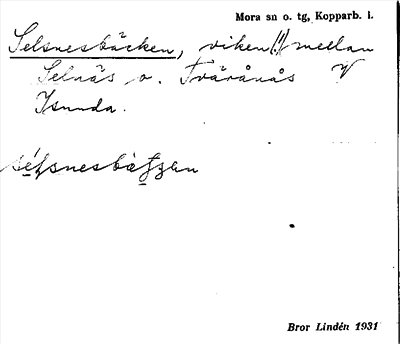 Mora sn o. tg, Kopparb. l.
Selsnesbäcken, viken(!) mellan
Selnäs o. Tvåränäs V
Isunda.
Bror Lindén 1931